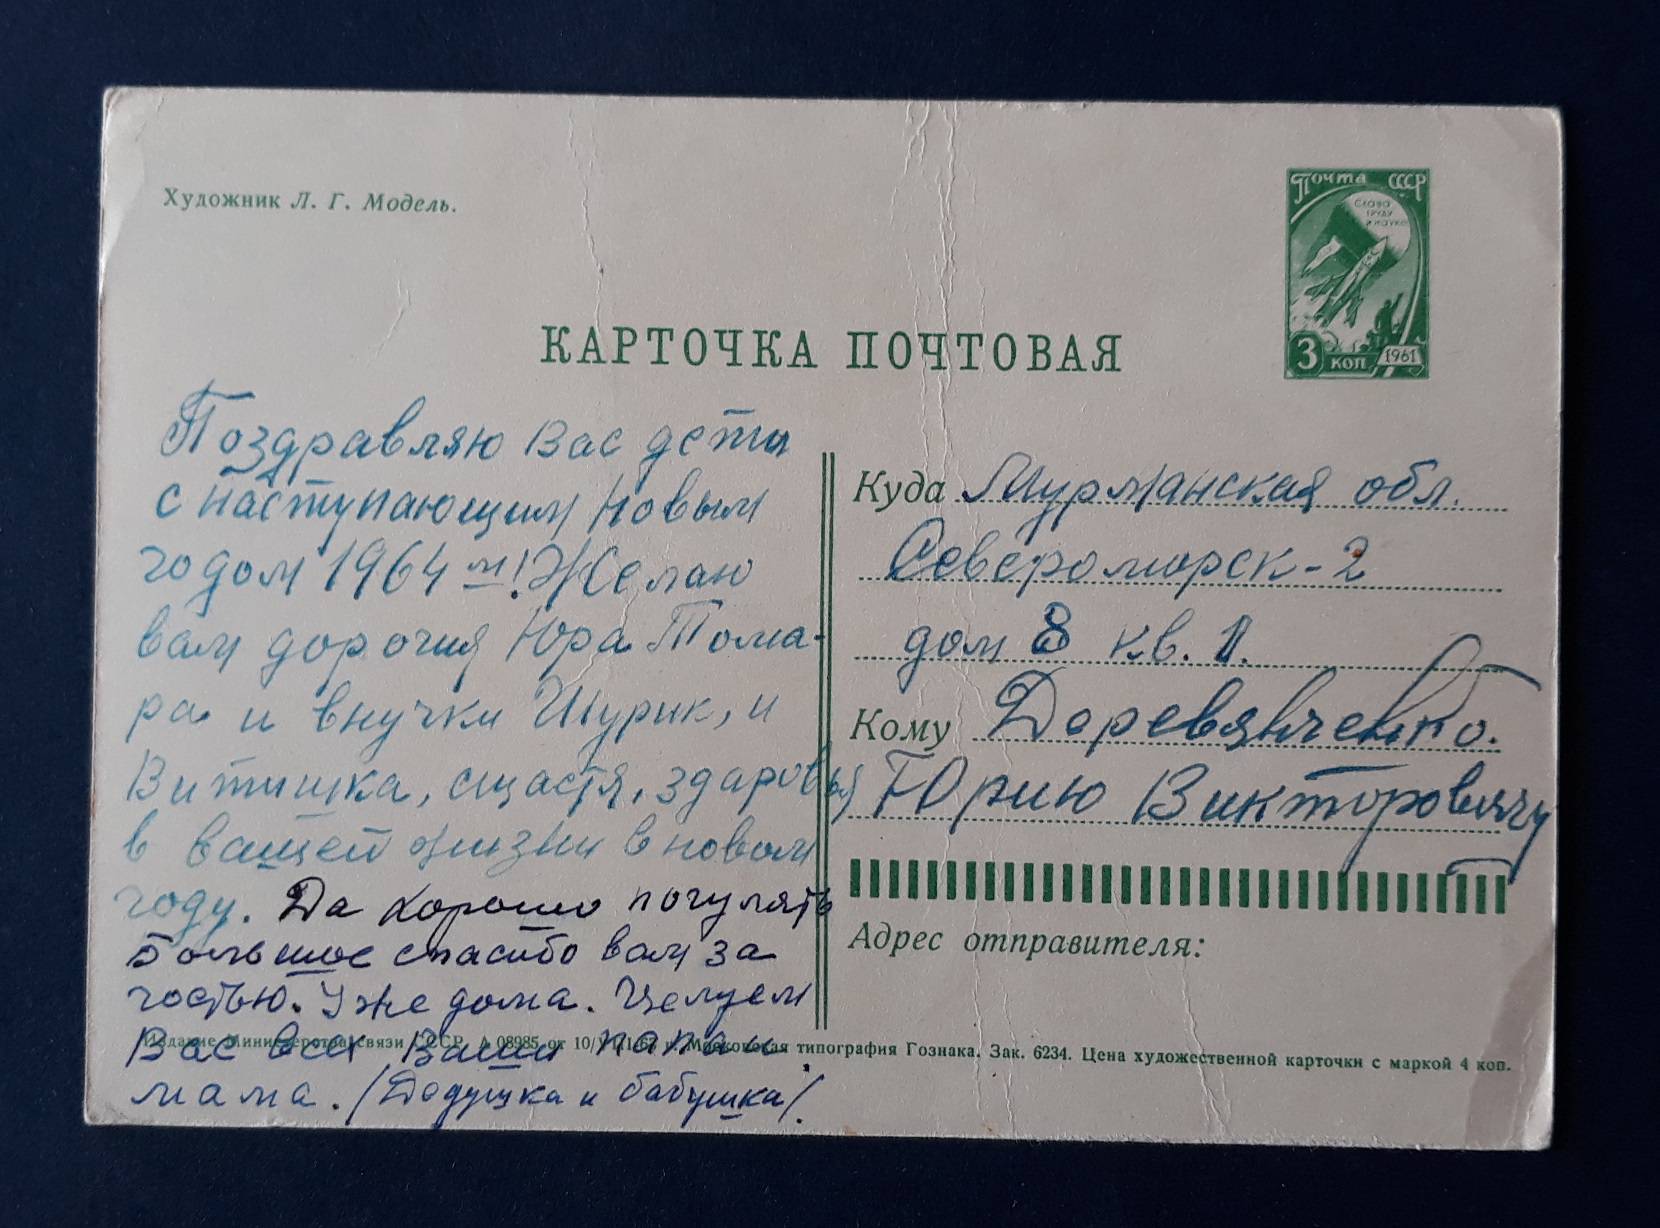 Художник Л. Г. Модель.
Почта СССР
Слава
труду
и науке
3 коп
1961
КАРТОЧКА ПОЧТОВАЯ
Поздравляю Вас дети
с наступающим новым
годом 1964 м! Желаю
вам дорогия Юра Тома-
ра и внучки Шурик, и
Витишка, сщастя, здаровья
в вашей жизни в новом
году. Да хорошо погулять
Большое спасибо вам за
гостью. Уже дома. Целуем
Вас всех Ваши папа и
мама. (Дедушка и бабушка).
Куда Мурманская обл.
Североморск-2
дом 8 кв. 1.
Кому Деревянченко.
Юрию Викторовичу
Адрес отправителя:
Издание Министерства связи СССР. А 08985 от 10/ г. Московская типография Гознака. Зак. 6234. Цена художественной карточки с маркой 4 коп.